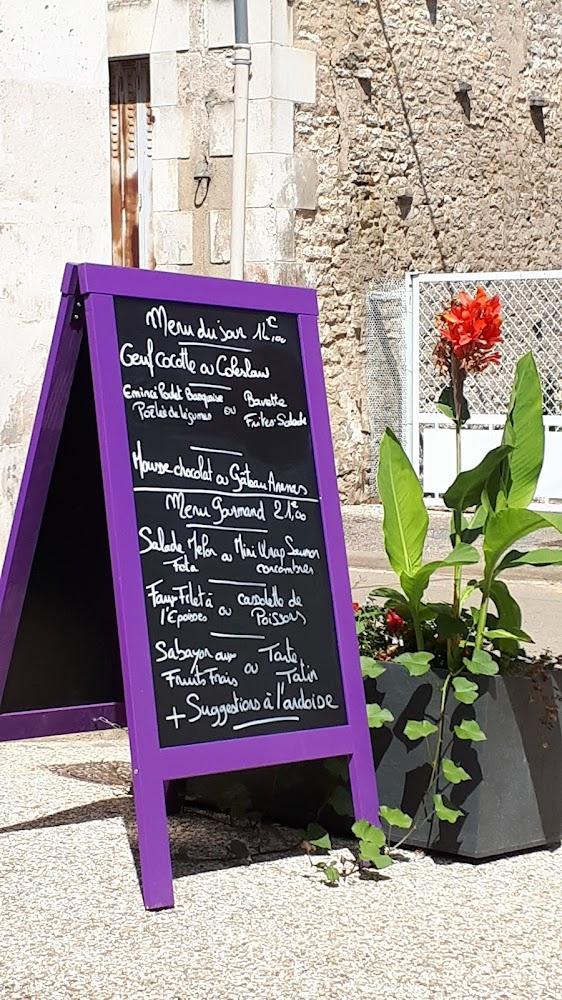 Menu du jour 14,00€
Oeuf cocotte ou Coleslaw
Emincé Poulet Basquaise ou Bavette
Poêlée de légumes Frites Salade
Mousse chocolat ou Gâteau Ananas
Menu Gourmand 21,00€
Salade Melon ou Mini Wrap Saumon
Feta concombres
Faux-Filet à ou cassolette de
l'Epoisses Poissons
Sabayon aux ou Tarte
Fruits Frais Tatin
+ Suggestions à l'ardoise